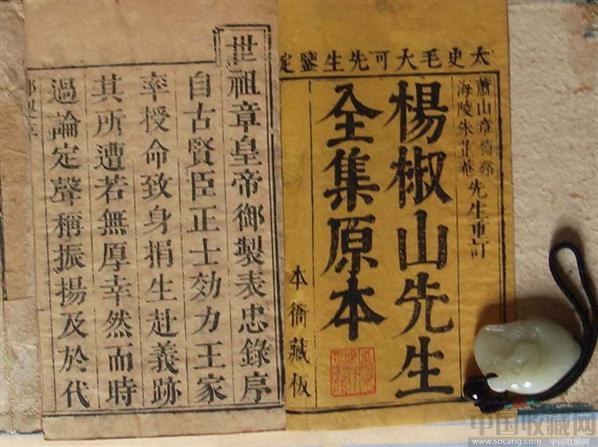 太史毛大可先生鑒定
蕭山章
海陵朱菴
先生重訂
楊椒山先生
全集原本
本衙藏板
世祖章皇帝御製表忠錄序
自古賢臣正士効力王家
率授命致身捐生赴義跡
其所遭若無厚幸然而時
過論定聲稱振揚及於代
中国收藏网
www.socang.com 中国收藏网